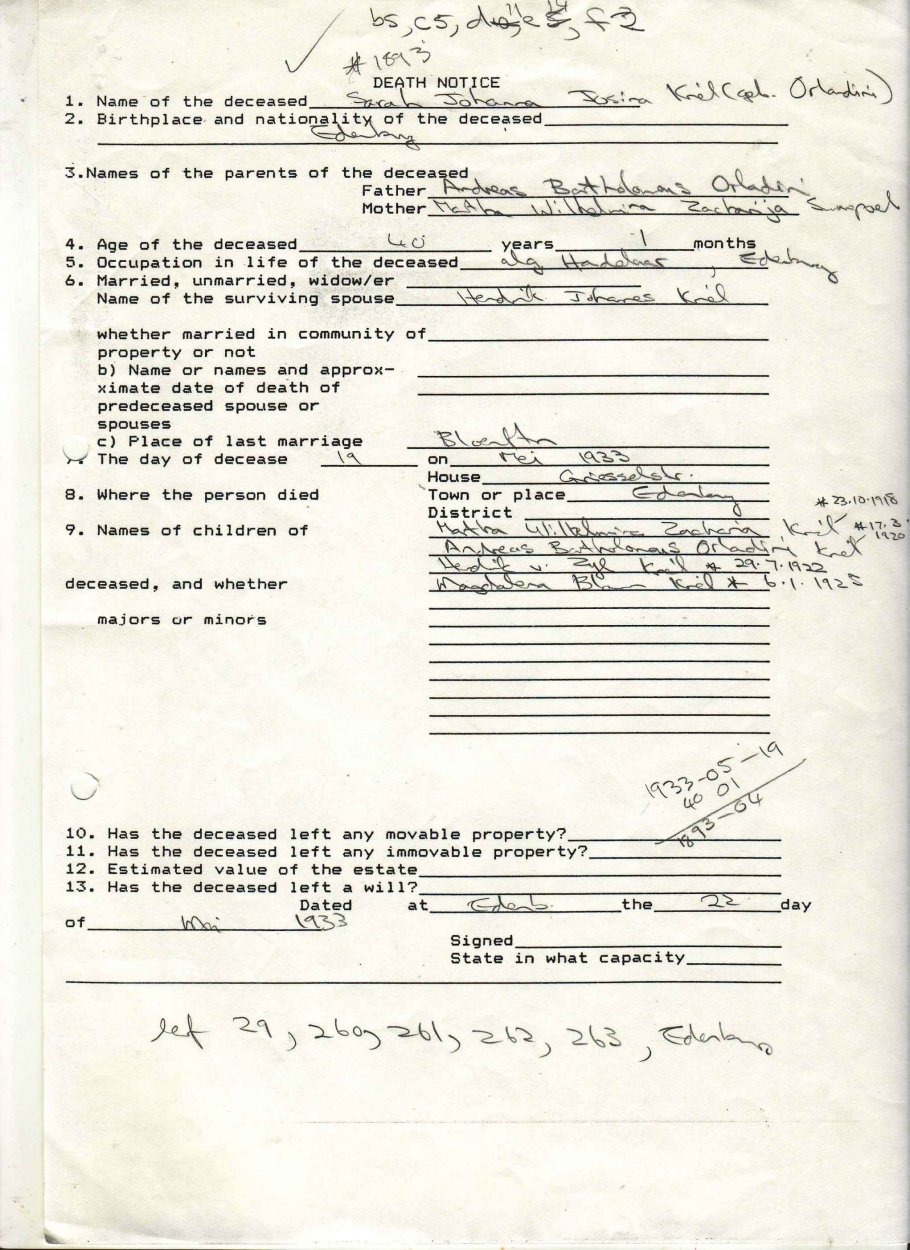 b5, c5,
#1893
DEATH NOTICE
1. Name of the deceased Sarah Johanna Josina Kriel (geb. Orladini)
2. Birthplace and nationality of the deceased
Edenburg
3.Names of the parents of the deceased
Father Andreas Bartholomeus Orladini
Mother Martha Wilhelmina Zacharija
4. Age of the deceased 40 years 1 months
5. Occupation in life of the deceased alg Handelaar, Edenburg
6. Married, unmarried, widow/er
Name of the surviving spouse Hendrik Johannes Kriel
whether married in community of
property or not
b) Name or names and approx-
ximate date of death of
predeceased spouse or
spouses
c) Place of last marriage Bloemftn
The day of decease 19 on Mei 1933
House
8. Where the person died Town or place Edenburg
District
#23.10.1918
9. Names of children of Martha Wilhelmina Zacharia Kriel #17.3.1920
Andreas Bartholomeus Orladini Kriel
Hendrik v. Zyl Kriel * 29.7.1922
deceased, and whether Magdalena Kriel * 6.1.1925
majors or minors
1933-05-19
40 01
1893-04
10. Has the deceased left any movable property?
11. Has the deceased left any immovable property?
12. Estimated value of the estate
13. Has the deceased left a will?
Dated at Edenb. the 22 day
of Mei 1933
Signed
State in what capacity
29, 260, 261, 262, 263, Edenburg